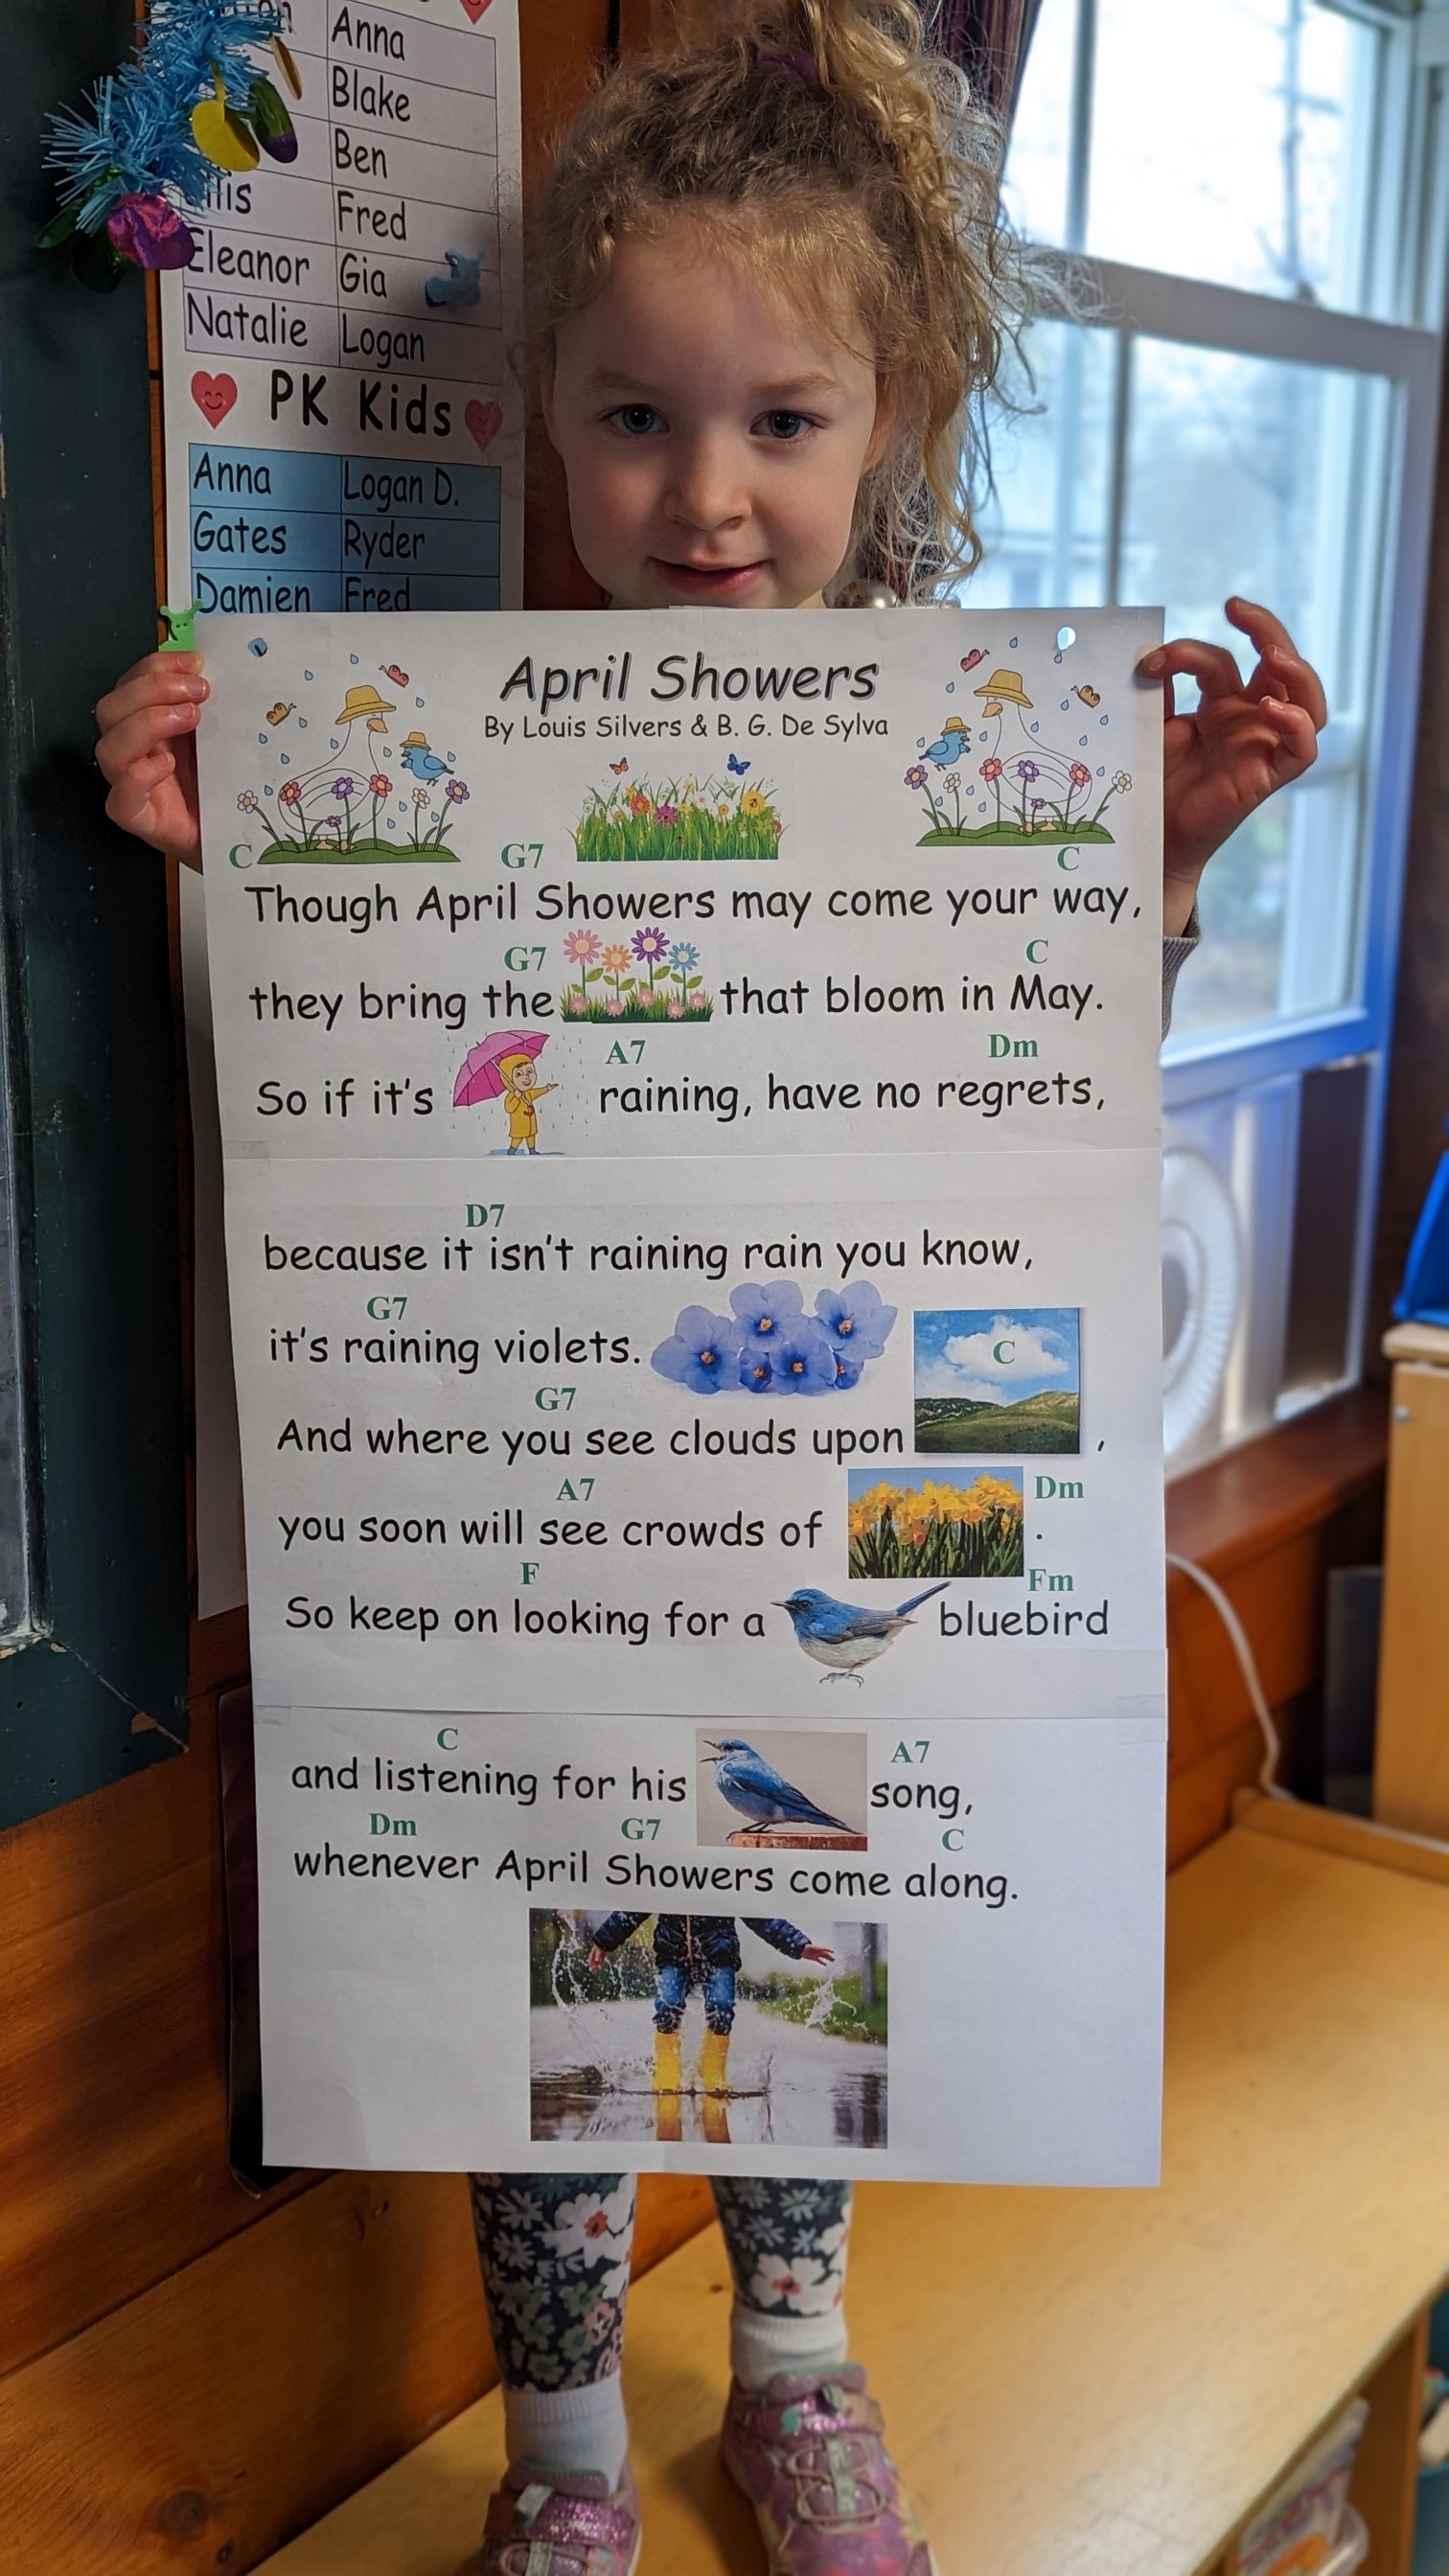 Anna
Blake
Ben
Fred
Eleanor Gia
Natalie Logan
PK Kids
Anna Logan D.
Gates Ryder
Damien Fred
April Showers
By Louis Silvers & B. G. De Sylva
C G7 C
Though April Showers may come your way,
G7 C
they bring the that bloom in May.
A7 Dm
So if it's raining, have no regrets,
D7
because it isn't raining rain you know,
G7
it's raining violets.
G7 C
And where you see clouds upon ,
A7 Dm
you soon will see crowds of .
F Fm
So keep on looking for a bluebird
C A7
and listening for his song,
Dm G7 C
whenever April Showers come along.